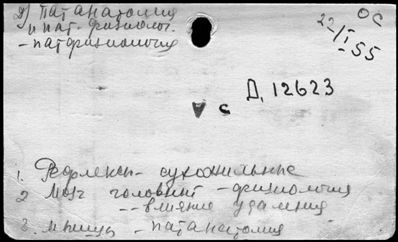 2) Патанатомия
и пат. физиолог.
- патфизиология
ОС
22/I-55
Д, 12623
с
1. Рефлексы - сухожильные
2 Мозг головн - физиология
-- влияние удаления
3. - патанатомия